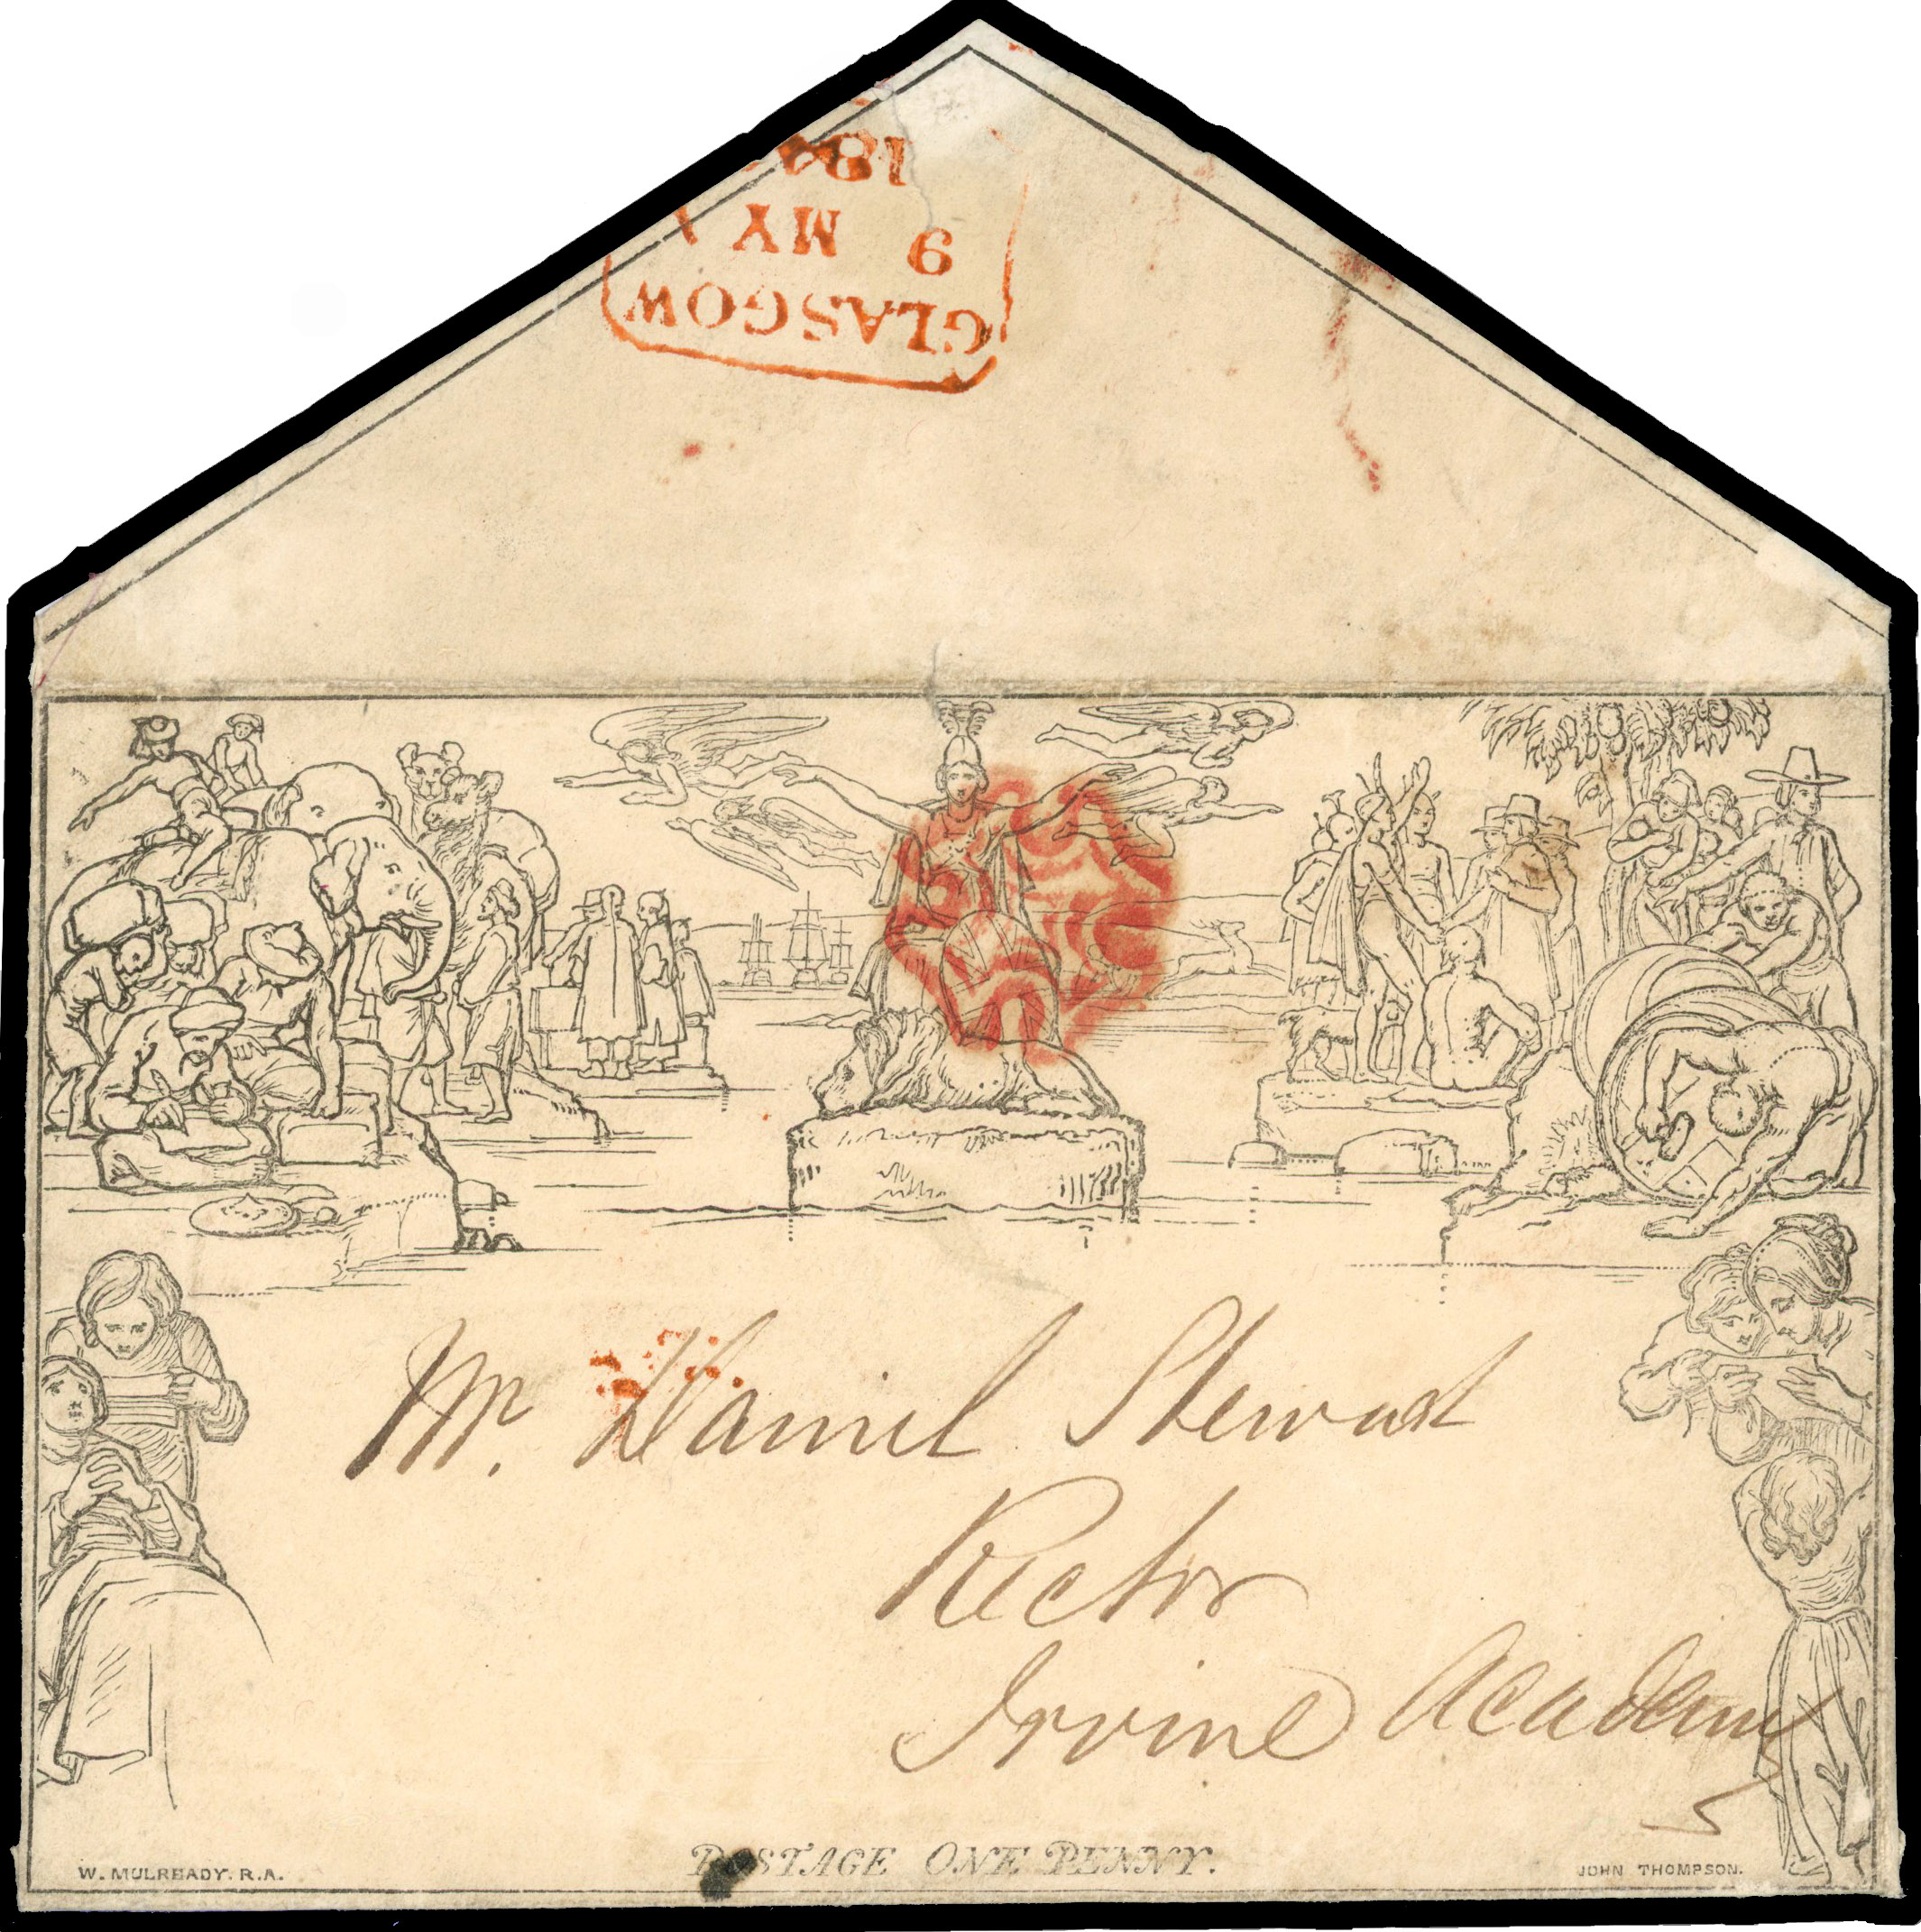 GLASGOW
9 MY
184
Mr. Daniel Stewart
Rector
Irvine Academy
POSTAGE ONE PENNY.
W. MULREADY. R.A.
JOHN THOMPSON.